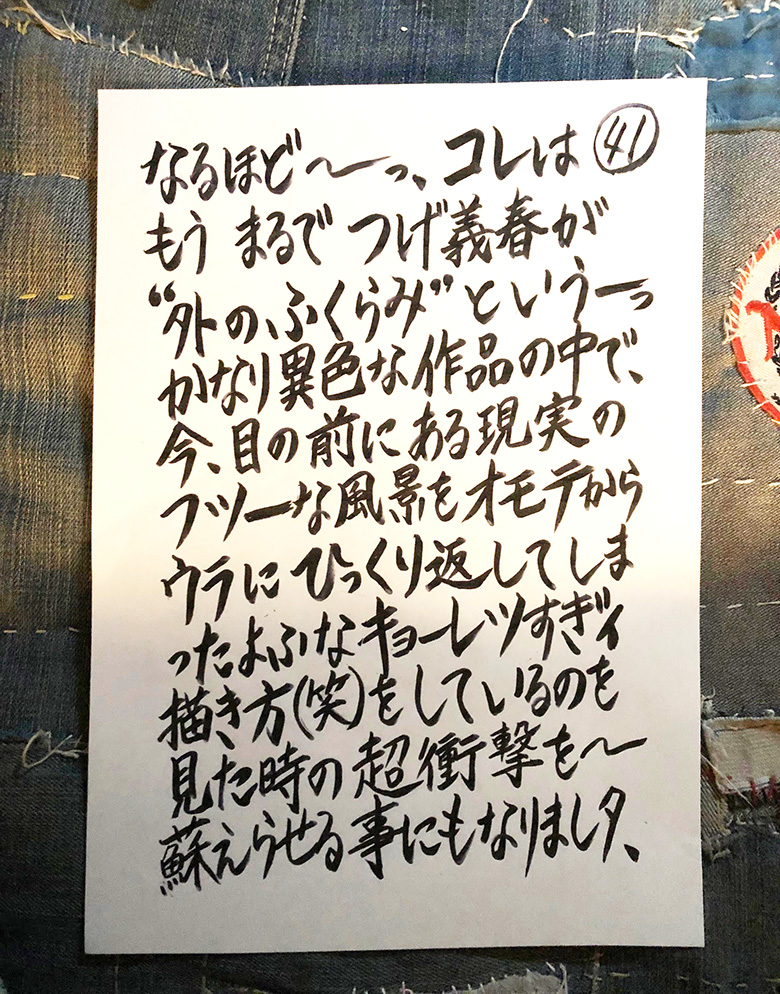 なるほど〜ーっ、コレは ㊶
もう まるで つげ義春が
“外の、ふくらみ”というーっ
かなり異色な作品の中で、
今、目の前にある現実の
フツーな風景をオモテから
ウラに ひっくり返してしま
ったよふなキョーレツすぎィ
描き方(笑)をしているのを
見た時の超衝撃を〜
蘇えらせる事にもなりましタ、